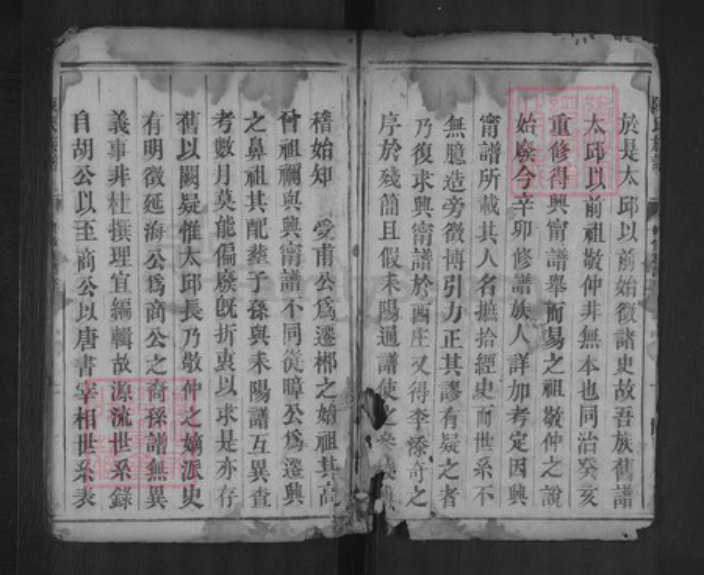 於是太邱以前始徵諸史故吾族舊譜
太邱以前祖敬仲非無本也同治癸亥
重修得興甯譜舉而易之祖敬仲之說
始廢今辛卯修譜族人詳加考定因興
甯譜所載其人名摭拾經史而世系不
無臆造旁徵博引力正其謬有疑之者
乃復求興甯譜於西庄又得李添奇之
序於殘簡且假耒陽通譜使之
稽始知 愛甫公為遷郴之始祖其高
曾祖禰與興甯譜不同從瞕公為遷興
之鼻祖其配塟子孫與耒陽譜互異查
考數月莫能偏廢旣折衷以求是亦存
舊以闕疑惟太邱長乃敬仲之嫡派史
有明徵延海公為商公之裔孫譜無異
義事非杜撰理宜編輯故源流世系錄
自胡公以至商公以唐書宰相世系表